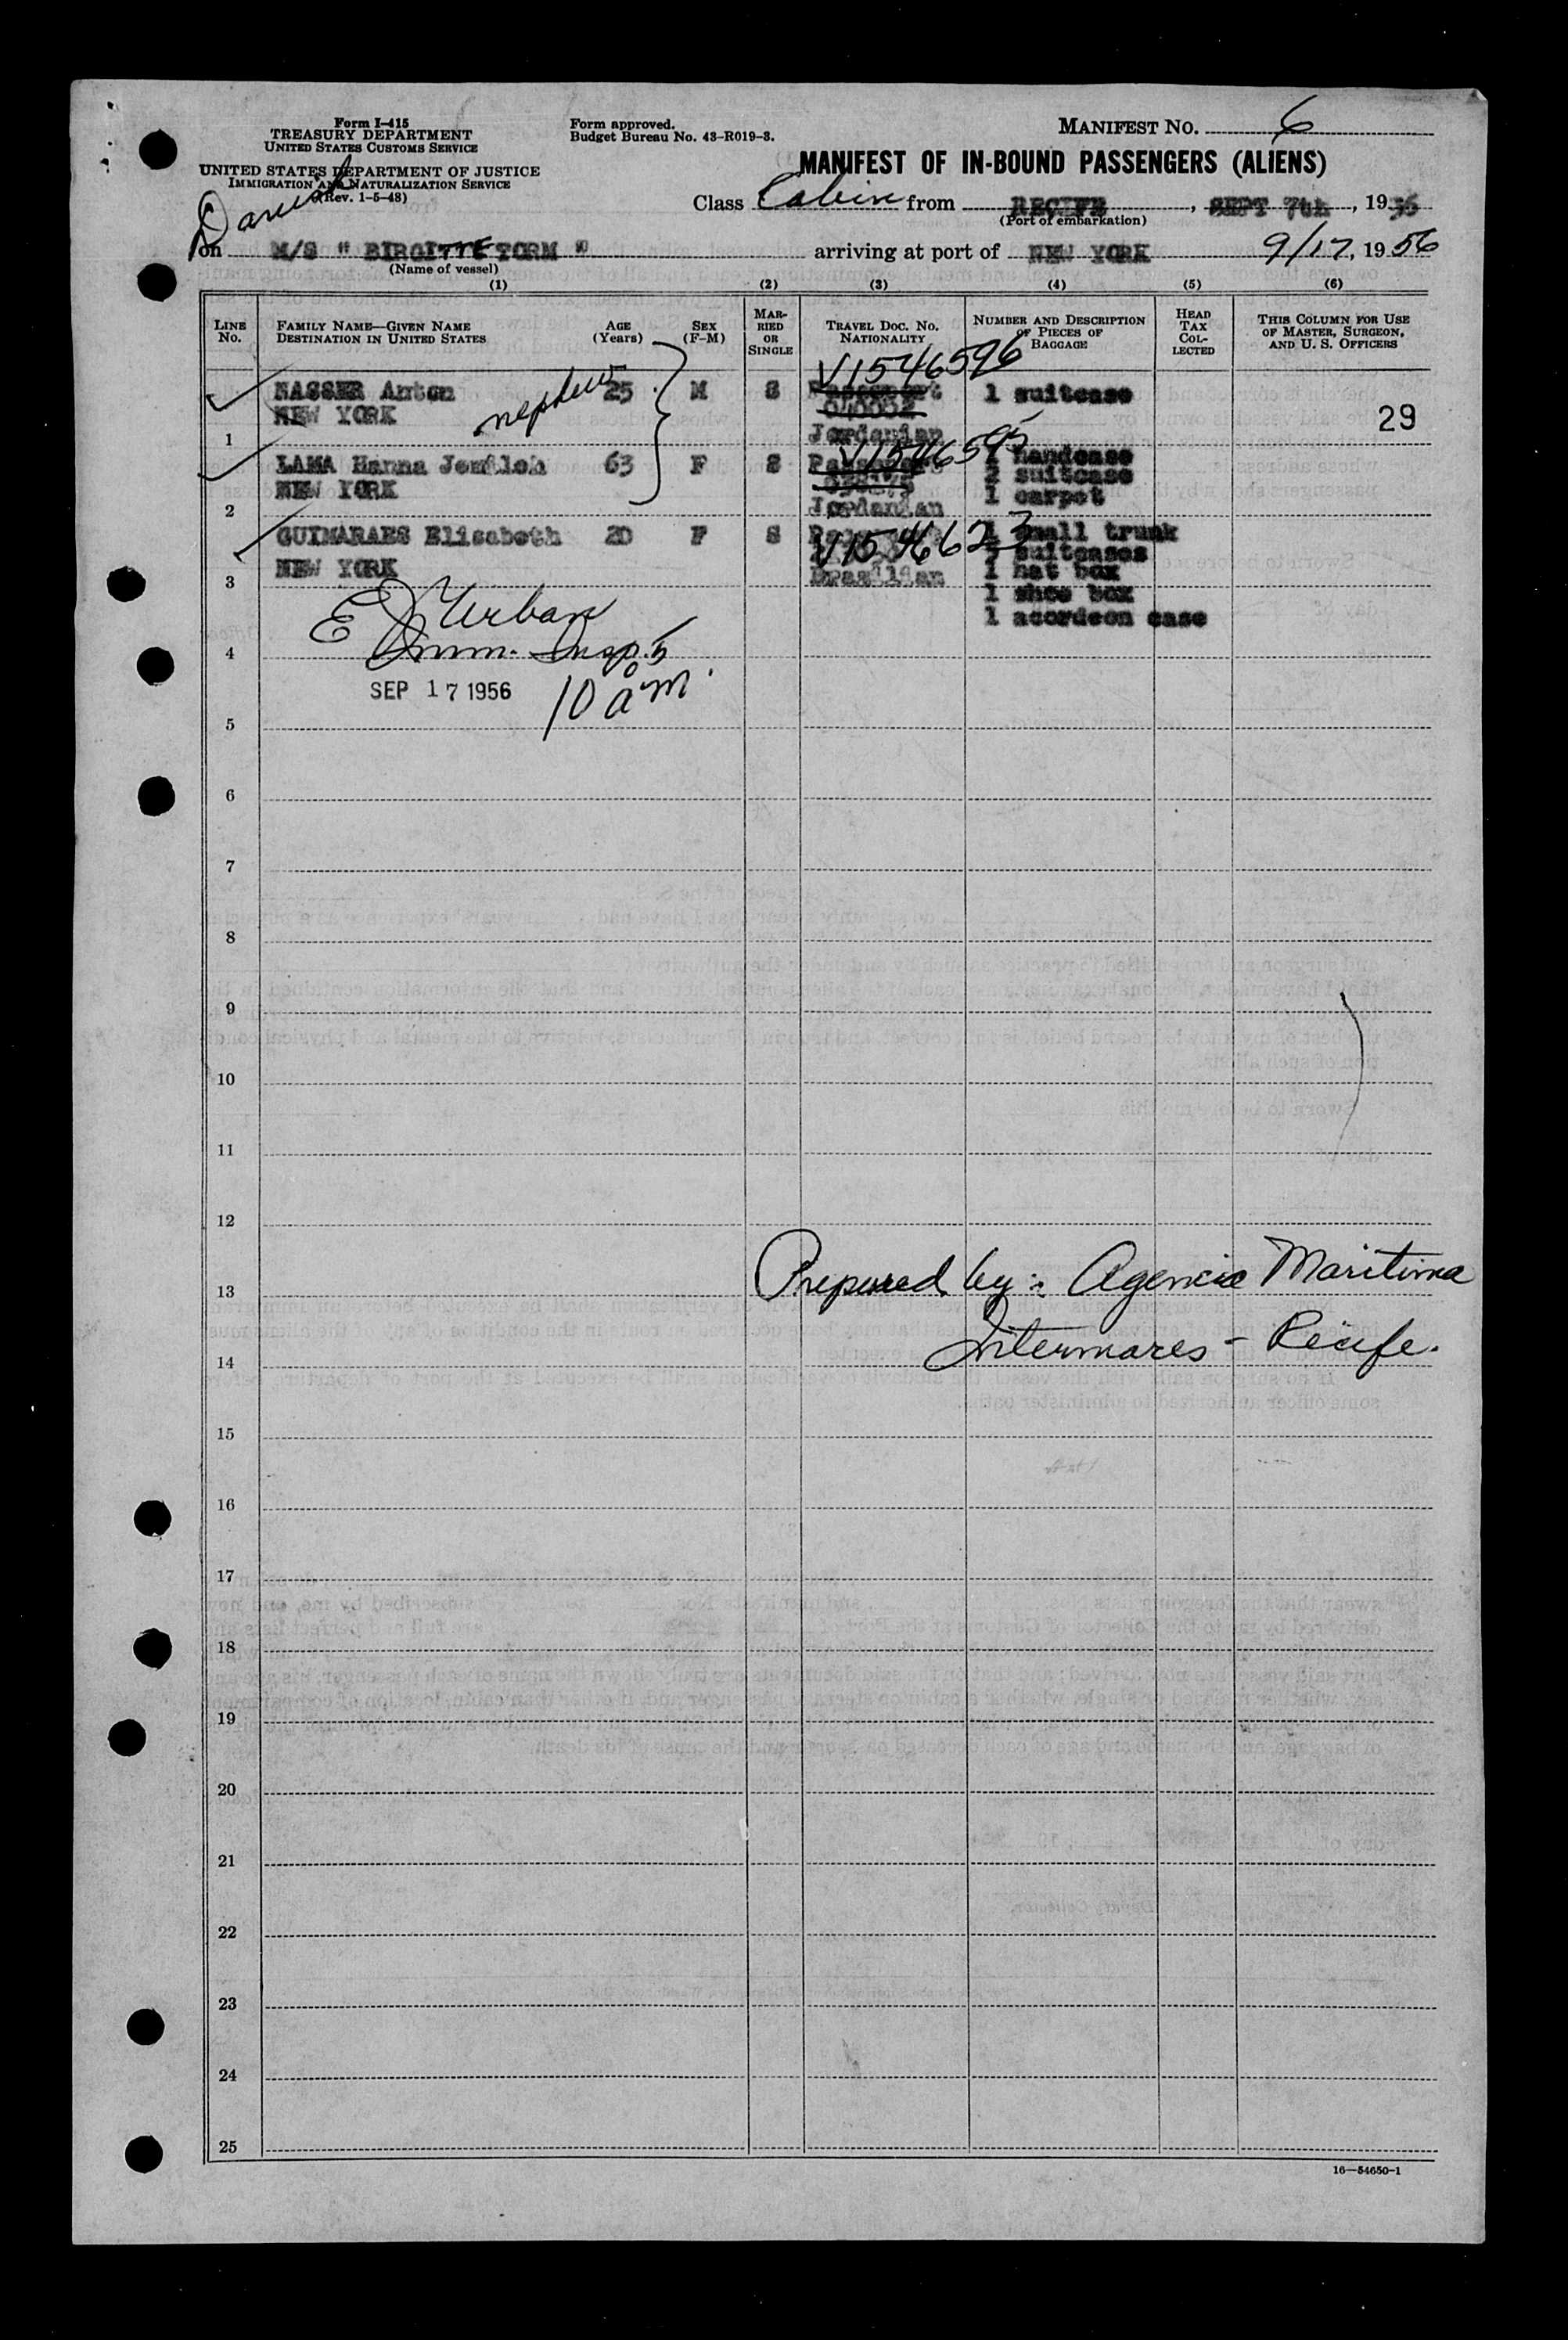 Form I-415
TREASURY DEPARTMENT
UNITED STATES CUSTOMS SERVICE
UNITED STATES DEPARTMENT OF JUSTICE
IMMIGRATION AND NATURALIZATION SERVICE
(Rev. 1-5-48)
Form approved.
Budget Bureau No. 43-R019-3.
MANIFEST NO. 6
MANIFEST OF IN-BOUND PASSENGERS (ALIENS)
Class Cabin from RECIFE, SEPT 7th, 1956
(Port of embarkation)
Danish
on M/S " BIRGITTE TORM " arriving at port of NEW YORK 9/17, 1956
(Name of vessel)
(1) (2) (3) (4) (5) (6)
LINE No.
FAMILY NAME—GIVEN NAME
DESTINATION IN UNITED STATES
AGE (Years)
SEX (F-M)
MARRIED OR SINGLE
TRAVEL DOC. NO.
NATIONALITY
NUMBER AND DESCRIPTION OF PIECES OF BAGGAGE
HEAD TAX COLLECTED
THIS COLUMN FOR USE OF MASTER, SURGEON, AND U. S. OFFICERS
V1546596
NASSER Anton nephew 25 M S Passport 1 suitcase
NEW YORK 040052 29
1 Jordanian
V1546595
LAMA Hanna 63 F S Passport 1 handcase
NEW YORK 2 suitcase
2 Jordanian 1 carpet
GUIMARAES Elisabeth 20 F S 1 small trunk
V1546623 suitcases
NEW YORK Brasilian 1 hat box
3 1 shoe box
1 acordeon case
E J Urban
4 Imm. Insp.
SEP 17 1956 10 am.
5
6
7
8
9
10
11
12
13 Prepared by: Agencia Maritima
14 Intermares - Recife.
15
16
17
18
19
20
21
22
23
24
25
16—54650-1